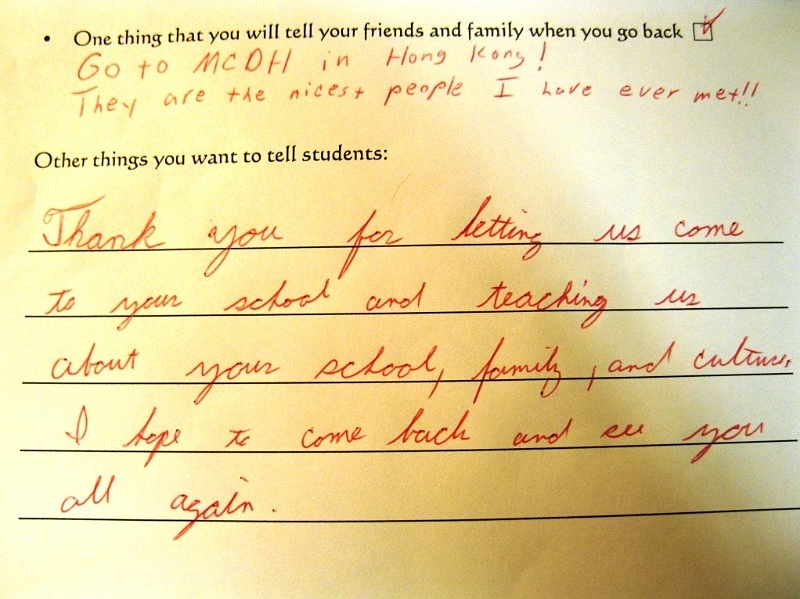 • One thing that you will tell your friends and family when you go back ☑
Go to MCDH in Hong Kong!
They are the nicest people I have ever met!!
Other things you want to tell students:
Thank you for letting us come
to your school and teaching us
about your school, family, and culture.
I hope to come back and see you
all again.